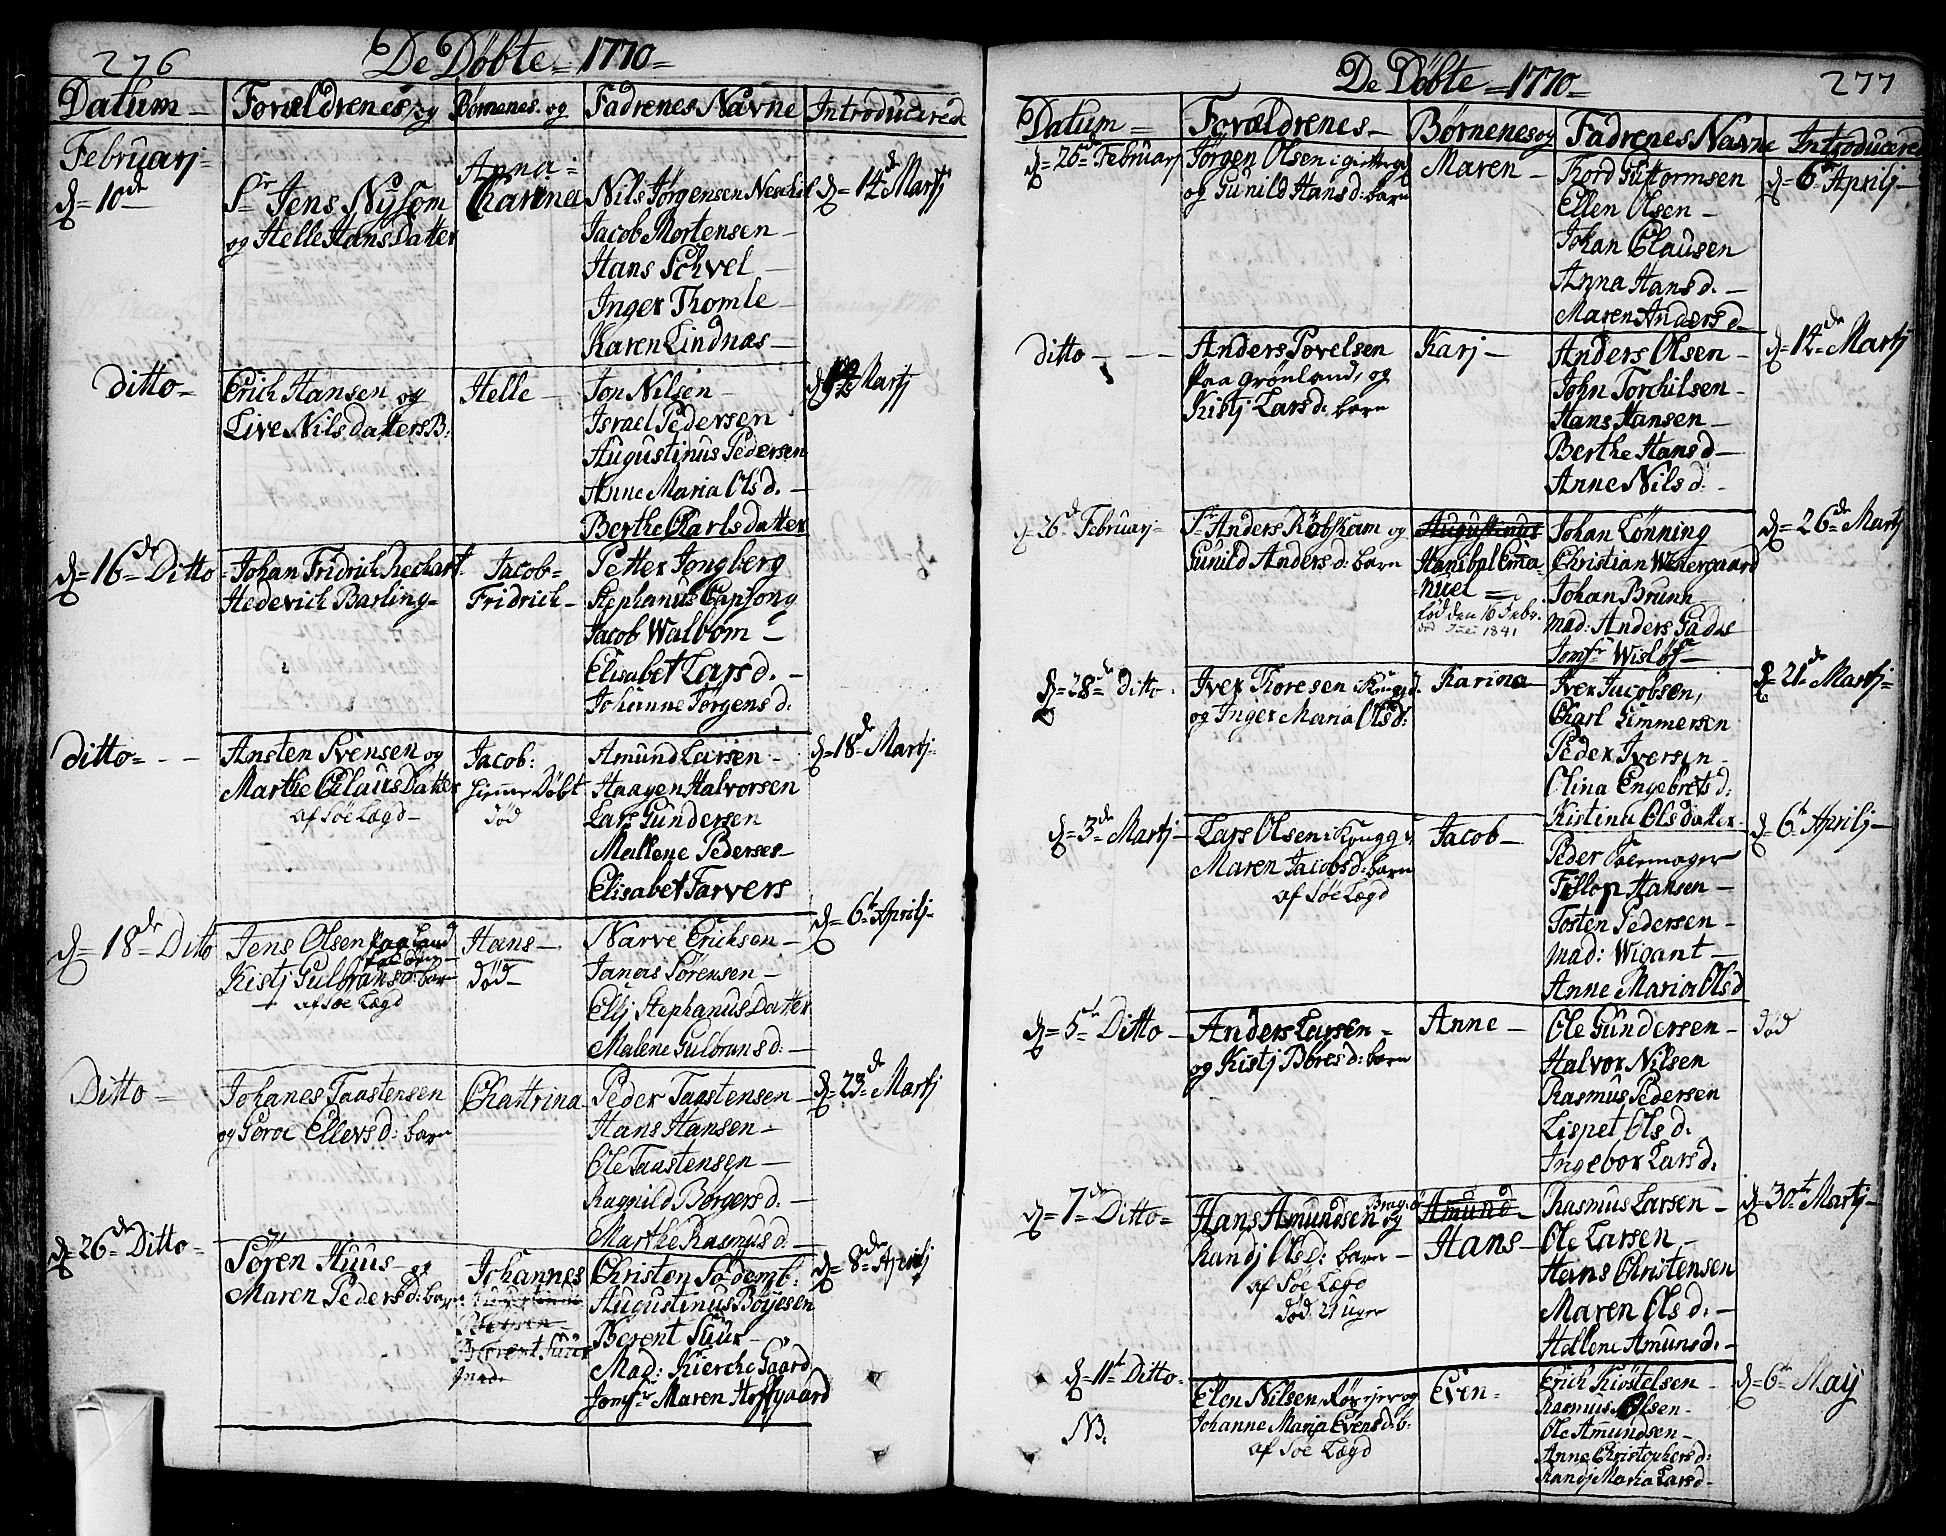 276
De Døbte = 1770 =
Datum = Forældrenes og Børnenes og Fadrenes Navne Introducerede
Februarj =
d = 10de
Sr Jens Nysom
og Helle Hans Datter
Anna =
Charina
Nils Jørgensen Neschil
Jacob Mortensen —
Hans Schvel —
Inger Thomle —
Karen Lindnæs —
d = 14de Martj
ditto =
Erich Hansen og
Live Nils datters B:
Helle —
Jon Nilsen —
Israel Pedersen
Augustinus Pedersen
Anne Maria Ols d. —
Berthe Charls datter
Martj
d = 16de Ditto
Johan Fridrich Rechart
Hederich Barling =
Jacob =
Fridrich —
Petter Jongberg
Stephanus Capsong
Jacob Walbom
Elisabet Lars d. —
Johanne Jørgens d.
ditto = - —
Ansten Svensen og
Marthe Claus Datter
af Søe Lægd —
Jacob:
hiemme Døbt
død
Amund Larsen —
Haagen Halvorsen
Lars Gundersen
Mallene Peders —
Elisabet Farvers
d = 18de Martj =
d = 18de Ditto
Jens Olsen paa Land
Kistj Gulbrans d: barn
af Søe Lægd
Hans —
død —
Narve Erichsen —
Janas Sørensen —
Ellj Stephanus Datter
Malene Gulbrans d: —
d = 6te Aprilj =
Ditto =
Johanes Taastensen
og Goroe Ellevs d: barn
Chattrina
Peder Taastensen —
Hans Hansen —
Ole Taastensen —
Ragnild Børgers d. —
Marthe Rasmus d. —
d = 23de Martj
d = 26de Ditto =
Søren Huus og
Maren Peders d: barn
Johannes
Berent Suur
Christen Sødemb:
Augustinus Bøyesen
Berent Suur —
Mad: Kierche Gaard
Jomfr Maren Hoffgaard
d = 8de Aprilj
De Døbte = 1770 =
277
Datum = Forældrenes — Børnenes og Fadrenes Navne Introducered
d = 26de Februarj
Jørgen Olsen i
og Gunild Hans d: barn
Maren —
Thord Guttormsen
Ellen Olsen —
Johan Clausen
Anna Hans d. —
Maren Anders d —
d = 6te Aprilj —
ditto — — —
Anders Povelsen
paa Grønland, og
Kistj Lars d: barn
Karj —
Anders Olsen —
John Torchilsen —
Hans Hansen —
Berthe Hans d —
Anne Nils d: —
d = 14de Martj
d = 26de Februarj =
Sr Anders Robsham og
Gunild Anders d: barn
Augustinus
Hanibal Ema=
nuel =
født den 16 Febr.
død Juni 1841
Johan Lønning
Christian Westergaard
Johan Brunn —
Mad: Anders Gades
Jomfr Wisløf —
d = 26de Martj
d = 28de Ditto.
Iver Thoresen i Krugg d.
og Inger Maria Ols d:
Karina —
Iver Jacobsen,
Charl Gimmersen
Peder Iversen —
Olina Engebrets d:
Kistine Ols datter
d = 21de Martj =
d = 3de Martj —
Lars Olsen i Krugg d.
Maren Jacobs d: barn
af Søe Lægd
Jacob —
Peder Toermager
Fillop Hansen —
Tosten Pedersen —
Mad: Wigant —
Anne Maria Ols d
d = 6te Aprilj —
d = 5te Ditto —
Anders Larsen =
og Kistj Børes d: barn
Anne —
Ole Gundersen —
Halvor Nilsen
Rasmus Pedersen
Lispet Ols d.
Ingebor Lars d.
død
d = 7de Ditto =
Hans Amundsen og Brag:ø
Randj Ols d: barn —
af Søe Lægd
død. 21 uger
Amund
Hans —
Rasmus Larsen —
Ole Larsen —
Hans Christensen
Maren Ols d. —
Hellene Amuns d. —
d = 30te Martj —
d = 11te Ditto.
NB.
Elen Nilsen, og
Johanne Maria Evens d: b:
af Søe Lægd
Even =
Erich Kiøstelsen —
Rasmus Olsen —
Ole Amundsen —
Anne Christophers d:
Randj Maria Lars d —
d = 6te Maij